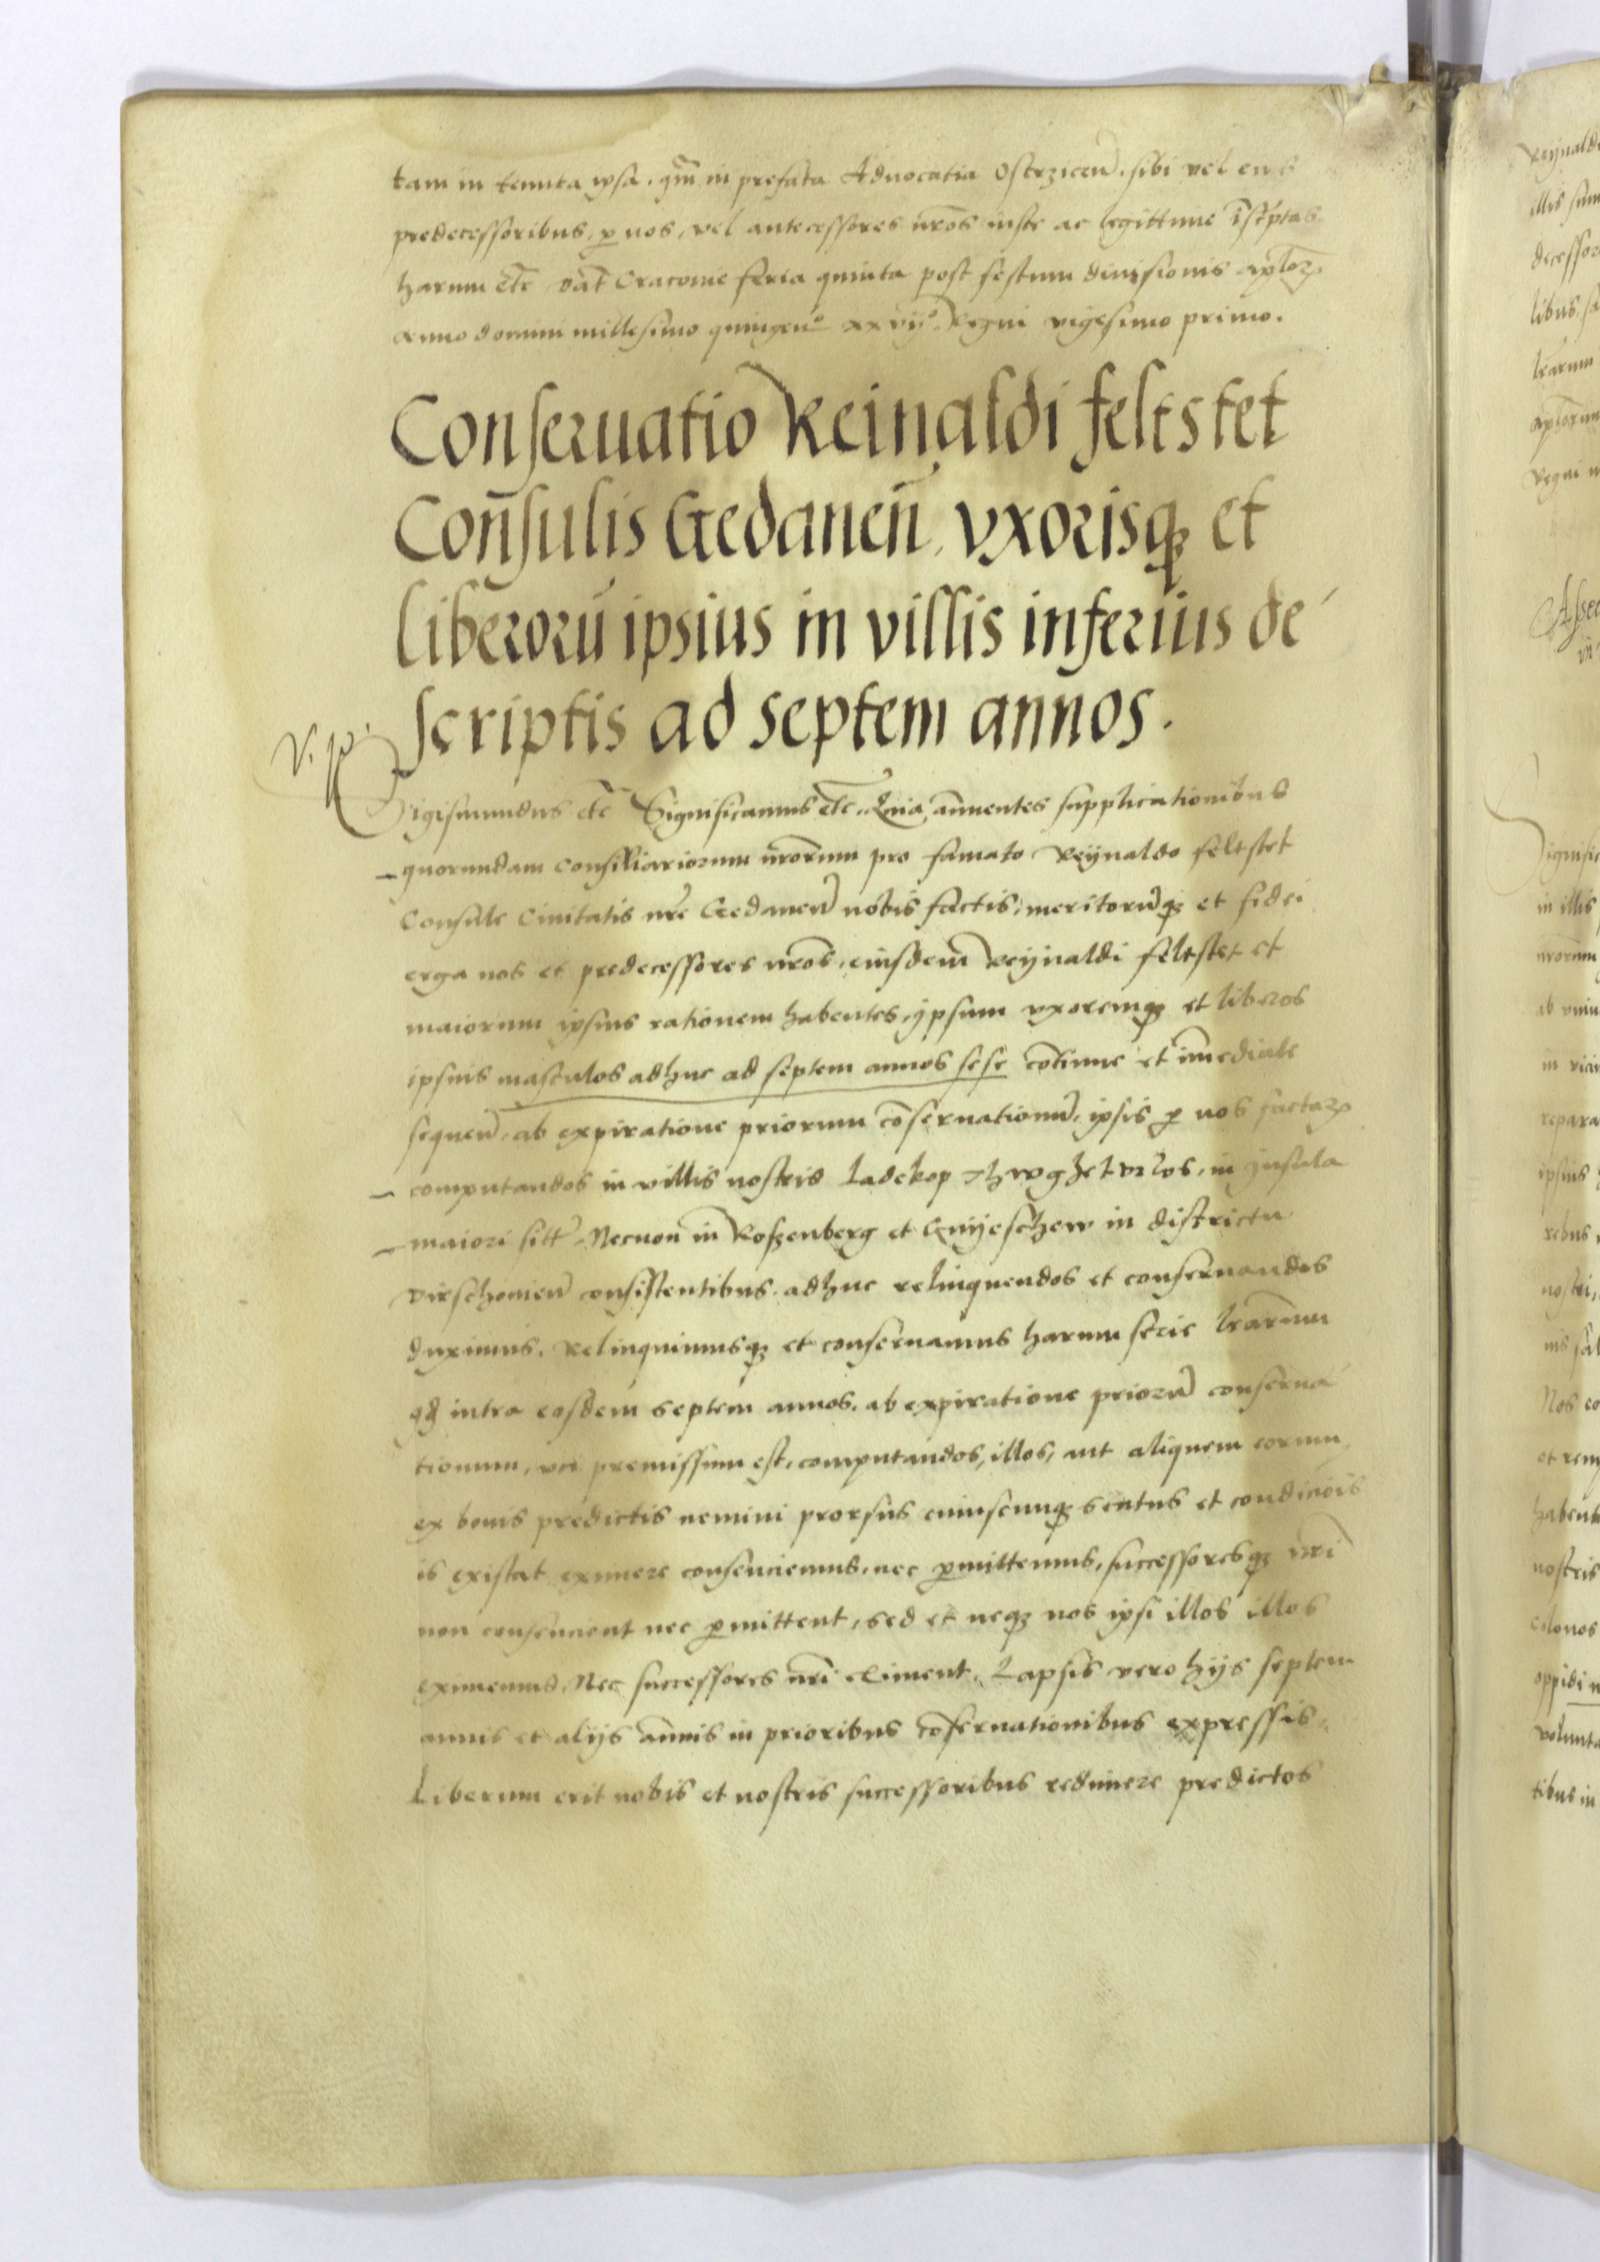 tam in tenuta ipsa, qm̄ in prefata Advocatia Ostrzicen̄, sibi vel eius
predecessoribus, p nos, vel antecessores nr̄os iuste ac legittime īscptas
harum etc̄ Dat̄ Cracovie feria quinta post festum divisionis apl̄oꝝ
Anno domini millesimo quingen̄ᵒ xxvijᵒ. Regni vigesimo primo.
Conseruatio Reinaldi feltstet
Con̄sulis Gedanen̄, vxorisqꝫ et
liberorū ipsius in villis inferius de
scriptis ad septem annos.
Sigismundus etc̄ Significamus etc̄. Quia annuentes supplicationibus
quorundam consiliariorum nr̄orum pro famato Reynaldo feltstet
Consule Civitatis nr̄e Gedanen̄ nobis factis, meritorūqꝫ et fidei
erga nos et predecessores nr̄os, eiusdem Reynaldi feltstet et
maiorum ipsius rationem habentes, ypsum vxoremqꝫ et liberos
ipsius masculos adhuc ad septem annos sese cōtinue et īmediate
sequen̄, ab expiratione priorum cōservationū, ipsis p nos factaꝝ
computandos in villis nostris Ladekop in Insula
maiori sitt̄. Necnon in Roszenberg et in districtu
Dirschovien̄ consistentibus, adhuc relinquendos et conservandos
duximus. Relinquimusqꝫ et conservamus harum serie l̄rarum
qđ intra eosdem septem annos, ab expiratione priorū conserva
tionum, vti premissum est, computandos, illos, aut aliquem eorum
ex bonis predictis nemini prorsus cuiuscunqꝫ status et condiciōis
is existat eximere consenciemus, nec pmittemus, successoresqꝫ nr̄i
non consencient nec pmittent, sed et neqꝫ nos ipsi illos illos
eximemus. Nec successores nr̄i eximent. Lapsis vero hijs septem
annis et alijs annis in prioribus cōservationibus expressis.
Liberum erit nobis et nostris successoribus redimere predictos